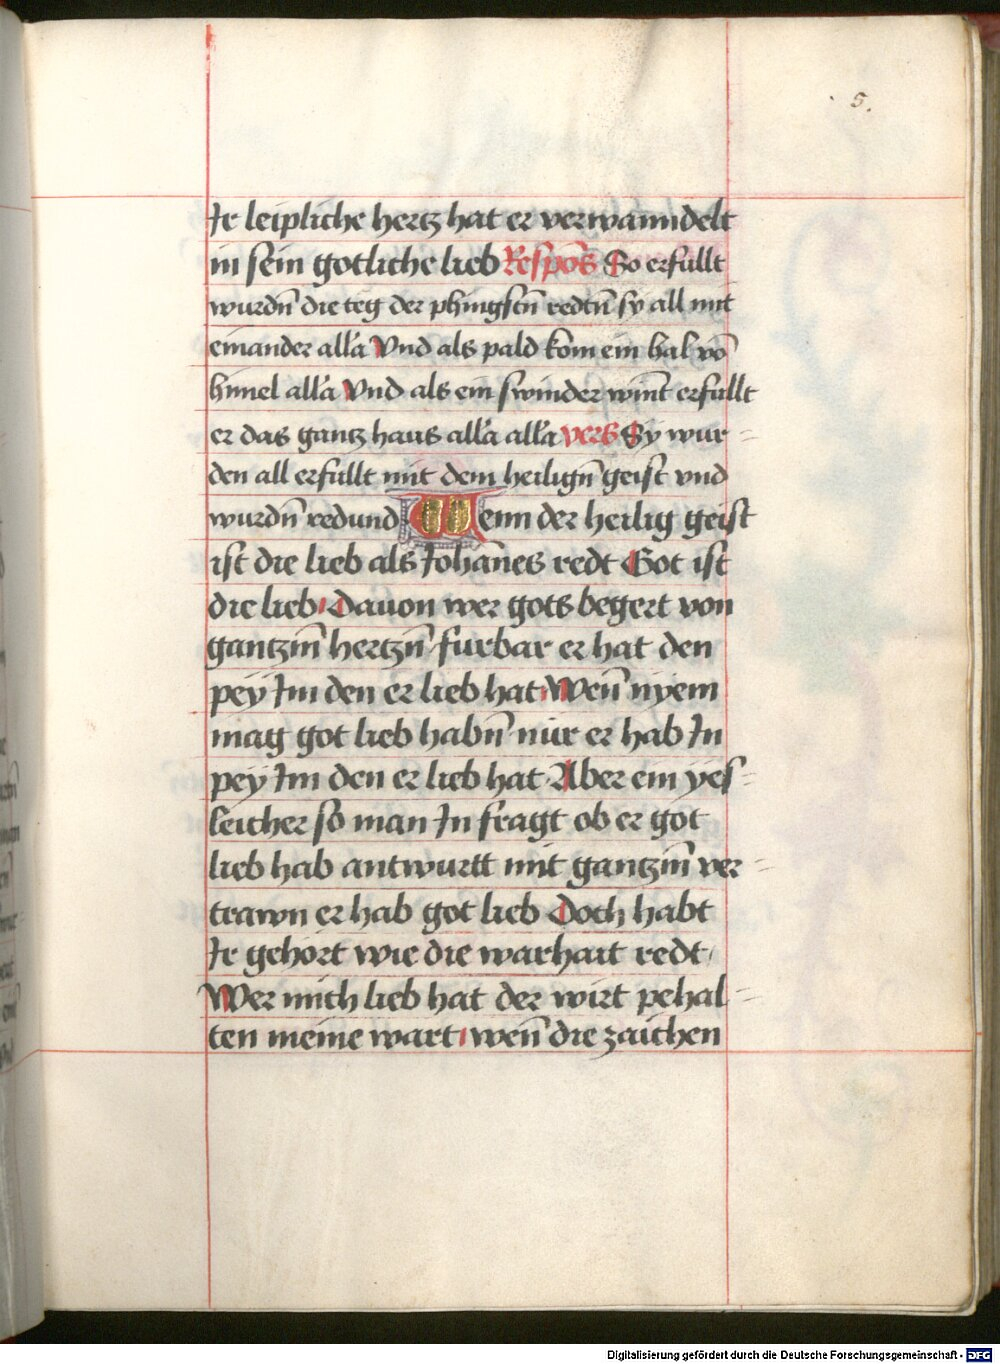 5.
Ir leipliche hertz hat er verwanndelt
in sein gotliche lieb Respons So erfullt
wurdn̄ die teg der phingstn̄ redtn̄ sy all mit
einander all'a Vnd als pald kom ein hal vō
himel all'a Vnd als ein swinder wint erfullt
er das gantz haus all'a all'a vers Sy wur=
den all erfullt mit dem heilign̄ geist vnd
wurdn̄ redund Wenn der heilig geist
ist die lieb als Johānes redt Got ist
die lieb Dauon wer gots begert von
gantzm̄ hertzn̄ furbar er hat den
pey Im den er lieb hat Wen̄ nyem
mag got lieb habn̄ nur er hab In
pey Im den er lieb hat Aber ein yes=
leicher so man In fragt ob er got
lieb hab antwurtt mit gantzm̄ ver=
trawn er hab got lieb Doch habt
Ir gehort wie die warhait redt
Wer mich lieb hat der wirt pehal=
ten meine wart wen̄ die zaichen
Digitalisierung gefördert durch die Deutsche Forschungsgemeinschaft - DFG